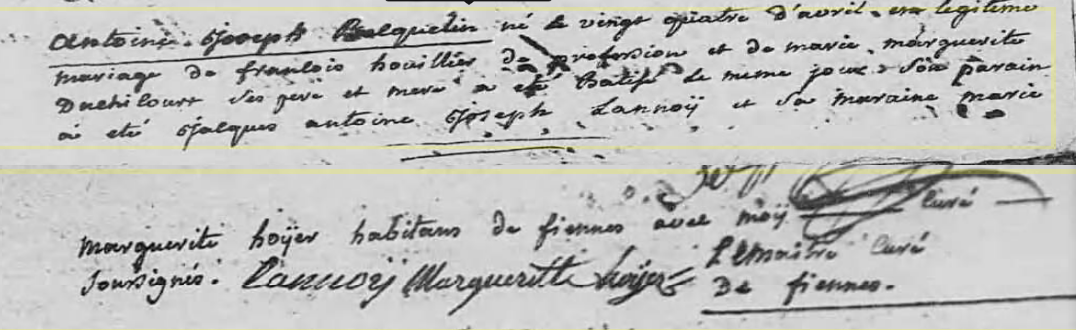 antoine joseph Balquelin né le vingt quatre d'avril en legitime
mariage de francois houillier de profession et de marie marguerite
Duchilourt ses pere et mere a eté Batisé le meme jour, son parain
a eté Jacques antoine joseph Lannoÿ et Sa maraine marie
marguerite hoÿer habitans de fiennes avec moÿ Curé
Soussignés. Lannoÿ Margueritte hoÿer Lemaitre Curé
De fiennes.